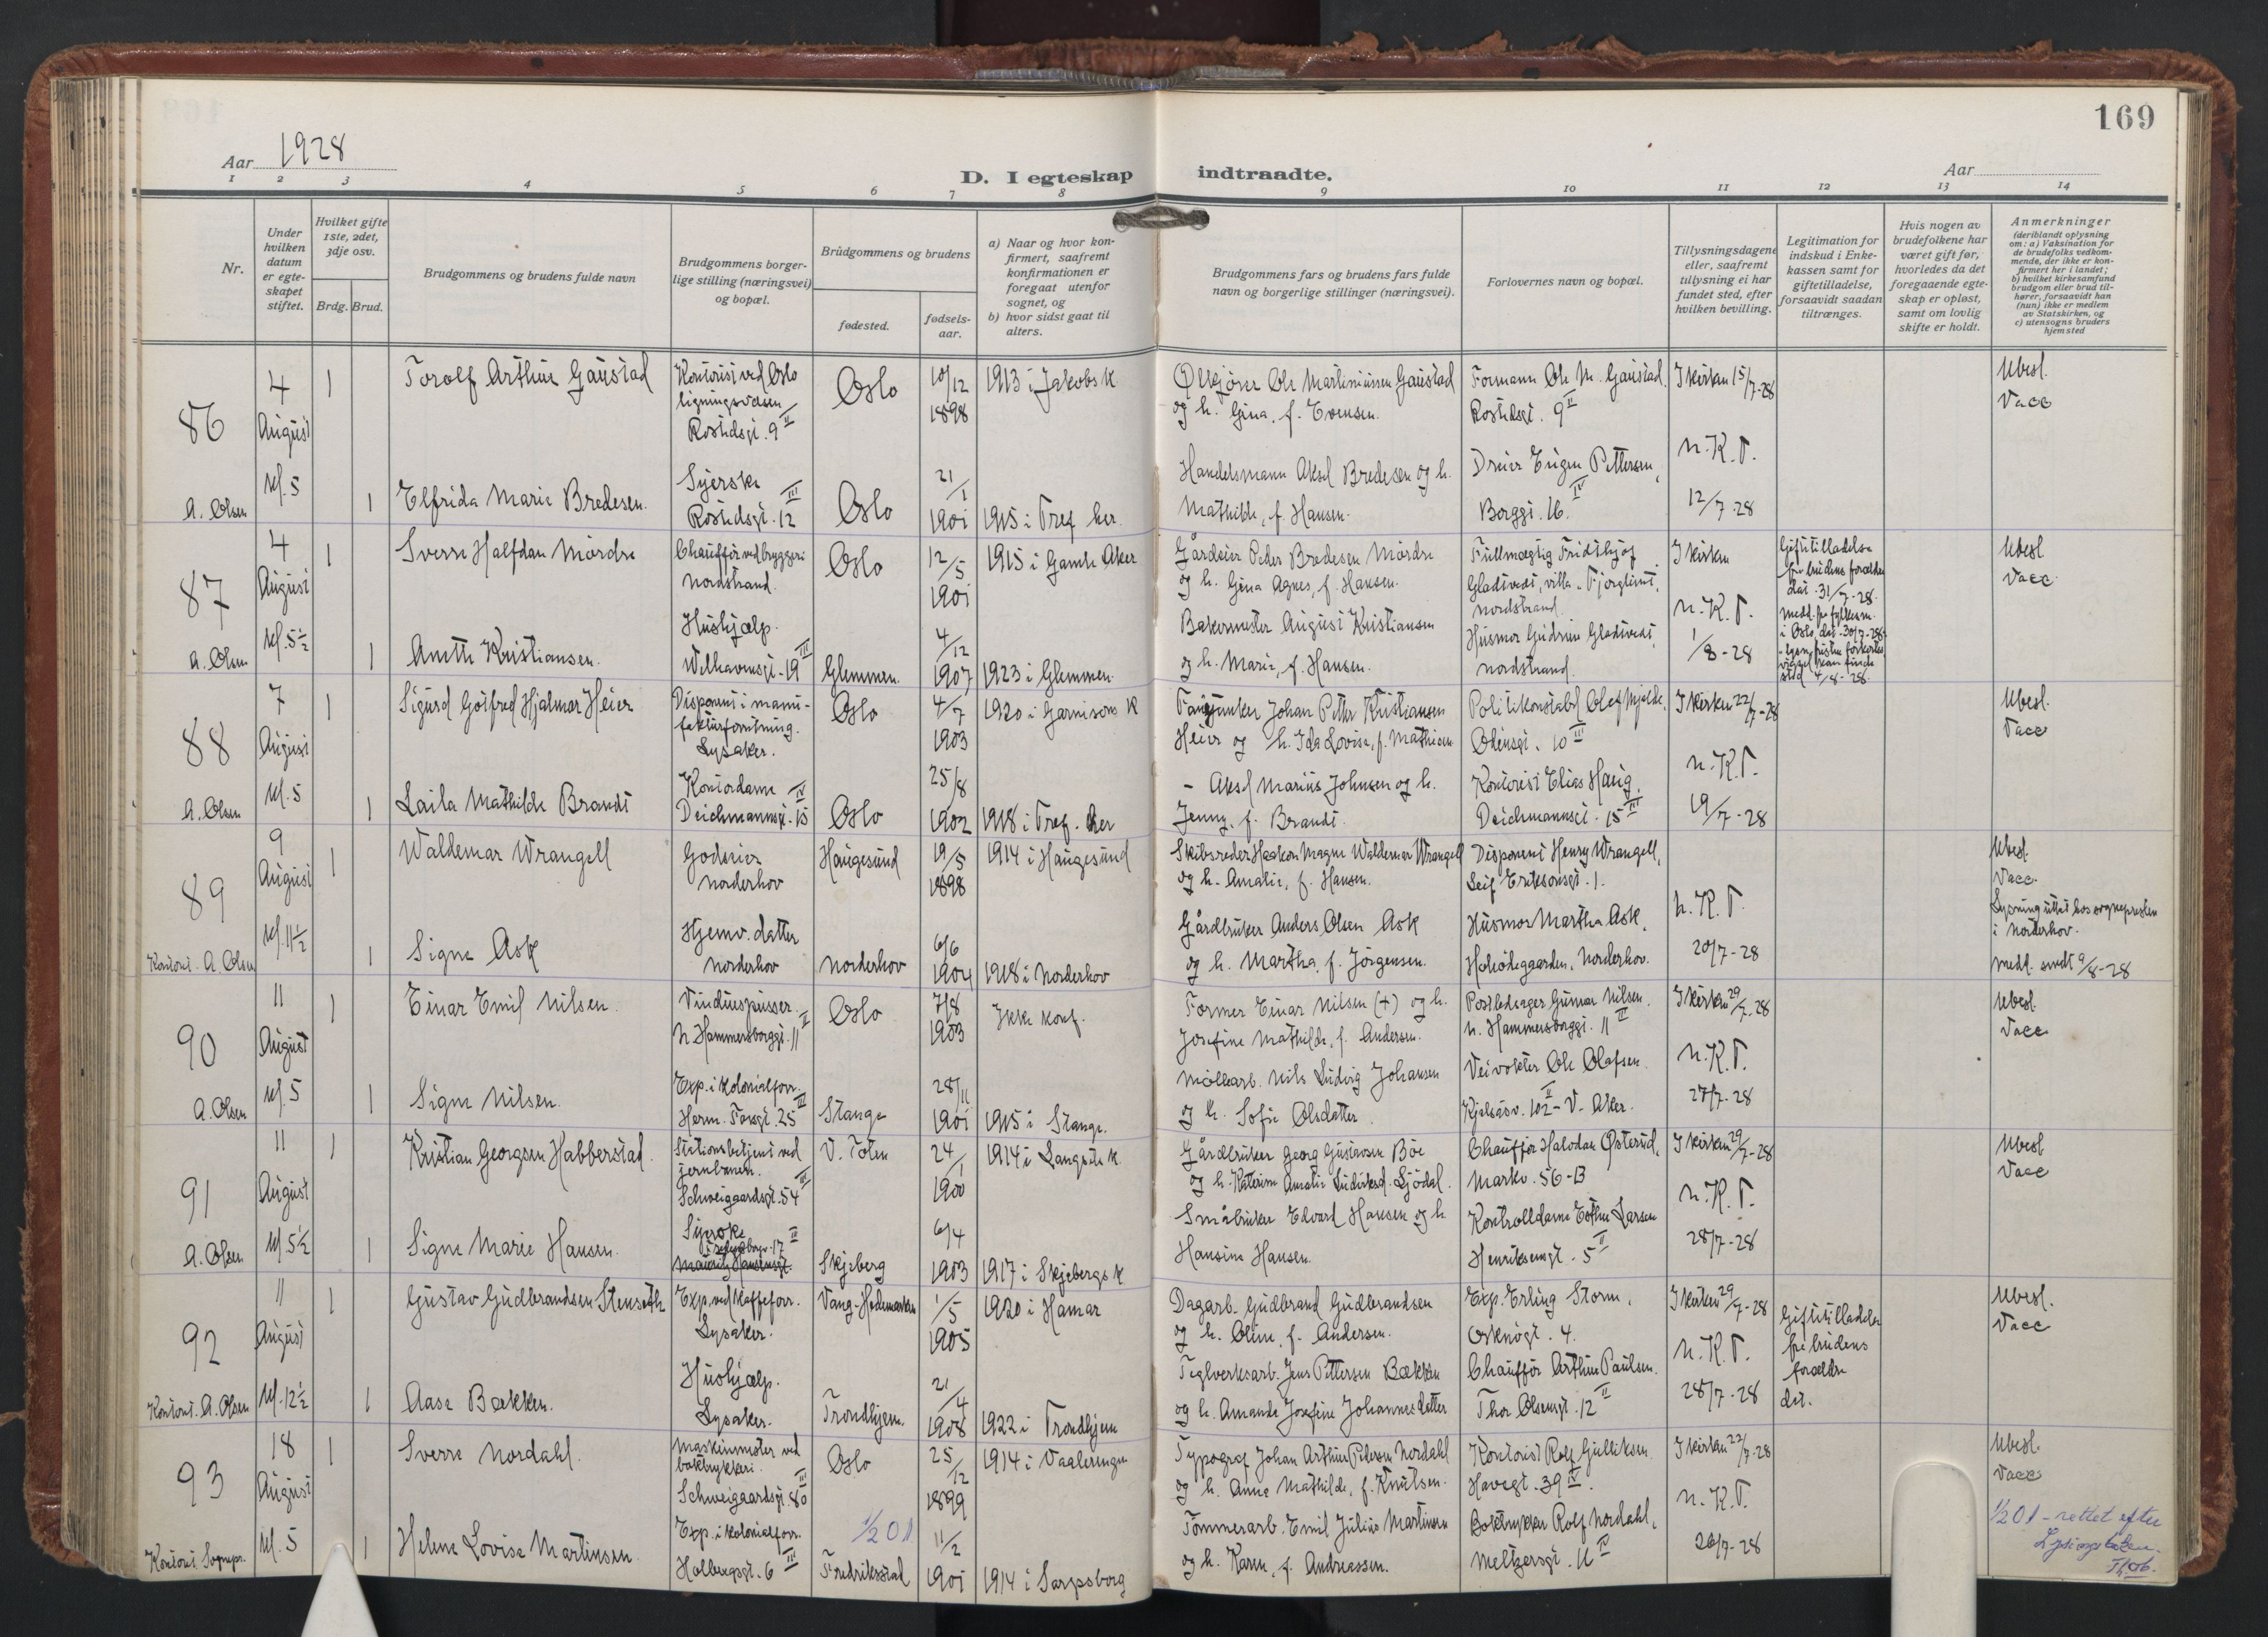 169
Aar 1928
D. I egteskap indtraadte.
Aar
1 2 3 4 5 6 7 8 9 10 11 12 13 14
Nr.
Under hvilken datum er egteskapet stiftet.
Hvilket gifte 1ste, 2det, 3dje osv.
Brdg. Brud.
Brudgommens og brudens fulde navn
Brudgommens borgerlige stilling (næringsvei) og bopæl.
Brudgommens og brudens
fødested.
fødselsaar.
a) Naar og hvor konfirmert, saafremt konfirmationen er foregaat utenfor sognet, og
b) hvor sidst gaat til alters.
Brudgommens fars og brudens fars fulde navn og borgerlige stillinger (næringsvei).
Forlovernes navn og bopæl.
Tillysningsdagene eller, saafremt tilysning ei har fundet sted, efter hvilken bevilling.
Legitimation for indskud i Enkekassen samt for giftetilladelse, forsaavidt saadan tiltrænges.
Hvis nogen av brudefolkene har været gift før, hvorledes da det foregaaende egteskap er opløst, samt om lovlig skifte er holdt.
Anmerkninger
(deriblandt oplysning om: a) Vaksination for de brudefolks vedkommende, der ikke er konfirmert her i landet; b) hvilket kirkesamfund brudgom eller brud tilhører, forsaavidt han (hun) ikke er medlem av Statskirken, og c) utensogns bruders hjemsted
86
A. Olsen
4 August kl. 5
1
Torolf Arthur Gaustad
Kontorist ved Oslo ligningsvæsen
Rostedsgt. 9 II
Oslo
10/12 1898
1913 i Jakobs K
Ole Martiniussen Gaustad
og h. Gina, f. Evensen.
Formann Ole M. Gaustad,
Rostedsgt. 9 II
I kirken 15/7-28
Ubesl.
Vacc
1
Elfrida Marie Bredesen.
Syerske
Rostedsgt. 12 III
Oslo
21/1 1901
1915 i Tref. her.
Handelsmann Aksel Bredesen og h.
Mathilde, f. Hansen.
Dreier Eugen Pettersen,
Borggt. 16. IV
n.K.T.
12/7-28
87
A. Olsen
4 August kl. 5½
1
Sverre Halfdan Mørdre
Chauffør ved bryggeri
Nordstrand.
Oslo
12/5 1901
1915 i Gamle Aker
Gårdeier Peder Bredesen Mørdre
og h. Gina Agnes, f. Hansen.
Fullmægtig Fridthjof
Gladtvedt, villa "Fjorglimt",
Nordstrand.
I kirken
Giftetilladelse
fra brudens forældre
dat. 31/7-28.
Ubesl
Vacc
1
Anette Kristiansen.
Hushjælp.
Welhavensgt. 19 III
Glemmen.
4/12 1907
1923 i Glemmen.
Bakermester August Kristiansen
og h. Marie, f. Hansen.
Husmor Gudrun Gladtvedt,
Nordstrand.
n.K.T.
1/8-28
88
A. Olsen
7 August kl. 5
1
Sigurd Gotfred Hjalmar Heier
Disponent i manufakturforretning.
Lysaker.
Oslo
4/7 1903
1920 i Garnisons K
Johan Petter Kristiansen
Heier og h. Ida Lovise, f. Mathisen
Politikonstabel Olef Mjelde,
Odinsgt. 10 III
I kirken 22/7-28
Ubesl.
Vacc
1
Laila Mathilde Brandt
Kontordame
Deichmannsgt. 15 IV
Oslo
25/8 1902
1918 i Tref. her
- Aksel Marius Johnsen og h.
Jenny, f. Brandt.
Kontorist Elias Haug,
Deichmannsgt. 15 III
n.K.T.
19/7-28
89
Kontoret. A. Olsen
9 August kl. 11½
1
Waldemar Wrangell
Godseier
Norderhov
Haugesund
19/5 1898
1914 i Haugesund
Skibsreder Haakon Magne Waldemar Wrangell
og h. Amalie, f. Hansen.
Disponent Henry Wrangell,
Leif Eriksonsgt. 1.
Ubesl.
Vacc.
Lysning uttat hos sogneprесten
i Norderhov.
1
Signe Ask
Hjemv. datter
Norderhov
Norderhov
6/6 1904
1918 i Norderhov
Gårdbruker Anders Olsen Ask
og h. Martha, f. Jørgensen.
Husmor Martha Ask,
Norderhov.
n.K.T.
20/7-28
Medd. sendt 9/8-28
90
A. Olsen
11 August kl. 5
1
Einar Emil Nilsen.
Vinduspusser.
N. Hammersborggt. 11 II
Oslo
7/8 1903
Ikke konf.
Former Einar Nilsen (+) og h.
Josefine Mathilde, f. Andersen.
Postbedrager Gunnar Nilsen,
N. Hammersborggt. 11 II
I kirken 29/7-28
Ubesl.
Vacc
1
Signe Nilsen.
Exp. i kolonialforr.
Herm. Fossgt. 25 III
Stange
28/11 1901
1915 i Stange.
Møllearb. Nils Ludvig Johansen
og h. Sofie Olsdatter
Veivokter Ole Olafsen
Kjelsåsv. 102 II - V. Aker.
n.K.T.
27/7-28
91
A. Olsen
11 August kl. 5½
1
Kristian Georgsen Habberstad.
Stationsbetjent ved
jernbanen.
Schweigaardsgt. 54 III
V. Toten
24/1 1900
1914 i Langsete K
Gårdbruker Georg Gustavsen Bøe
og h. Katerine Amalie
Chauffør Halvdan Østerud,
Markv. 56-B
I kirken 29/7-28
Ubesl
Vacc
1
Signe Marie Hansen.
Syerske
Skjeberg
6/4 1903
1917 i Skjebergs K
Småbruker Edvard Hansen og h.
Hansine Hansen.
Kontrolldame Esther Larsen
Henriksensgt. 5 II
n.K.T.
28/7-28
92
Kontoret. A. Olsen
11 August kl. 12½
1
Gustav Gudbrandsen Stenseth
Exp. ved kaffeforr.
Lysaker.
Vang-Hedemarken
1/5 1905
1920 i Hamar
Dagarb. Gudbrand Gudbrandsen
og h. Oline, f. Andersen.
Exp. Erling Storm,
4.
I kirken 29/7-28
Giftetilladelse
fra brudens
forældre
dat.
Ubesl.
Vacc
1
Aase Bækken.
Hushjælp.
Lysaker.
Trondhjem.
21/4 1908
1922 i Trondhjem
Teglverksarb. Jens Pettersen Bækken
og h. Amanda Josefine Johannesdatter
Chauffør Arthur Paulsen.
Thor Olsensgt. 12 II
n.K.T.
28/7-28
93
Kontoret Sognepr.
18 August kl. 5
1
Sverre Nordahl.
Maskinmester ved
boktrykkeri.
Schweigaardsgt. 80 III
Oslo
25/12 1899
1914 i Vaalerengen
Typograf Johan Arthur Petersen Nordahl
og h. Anna Mathilde, f. Knutsen.
Kontorist Rolf Gulliksen
Havegt. 39 IV.
I kirken 22/7-28
Ubesl.
Vacc
1
Helene Lovise Martinsen.
Exp. i kolonialforr.
Holbergsgt. 6 III
1/2 01
Fredriksstad
11/2 1901
1914 i Sarpsborg
Tømmerarb. Emil Julius Martinsen
og h. Karen, f. Andreassen.
Boktrykker Rolf Nordahl,
Meltzersgt. 11 IV
n.K.T.
26/7-28
1/2 01 - rettet efter
Lysingsboken.